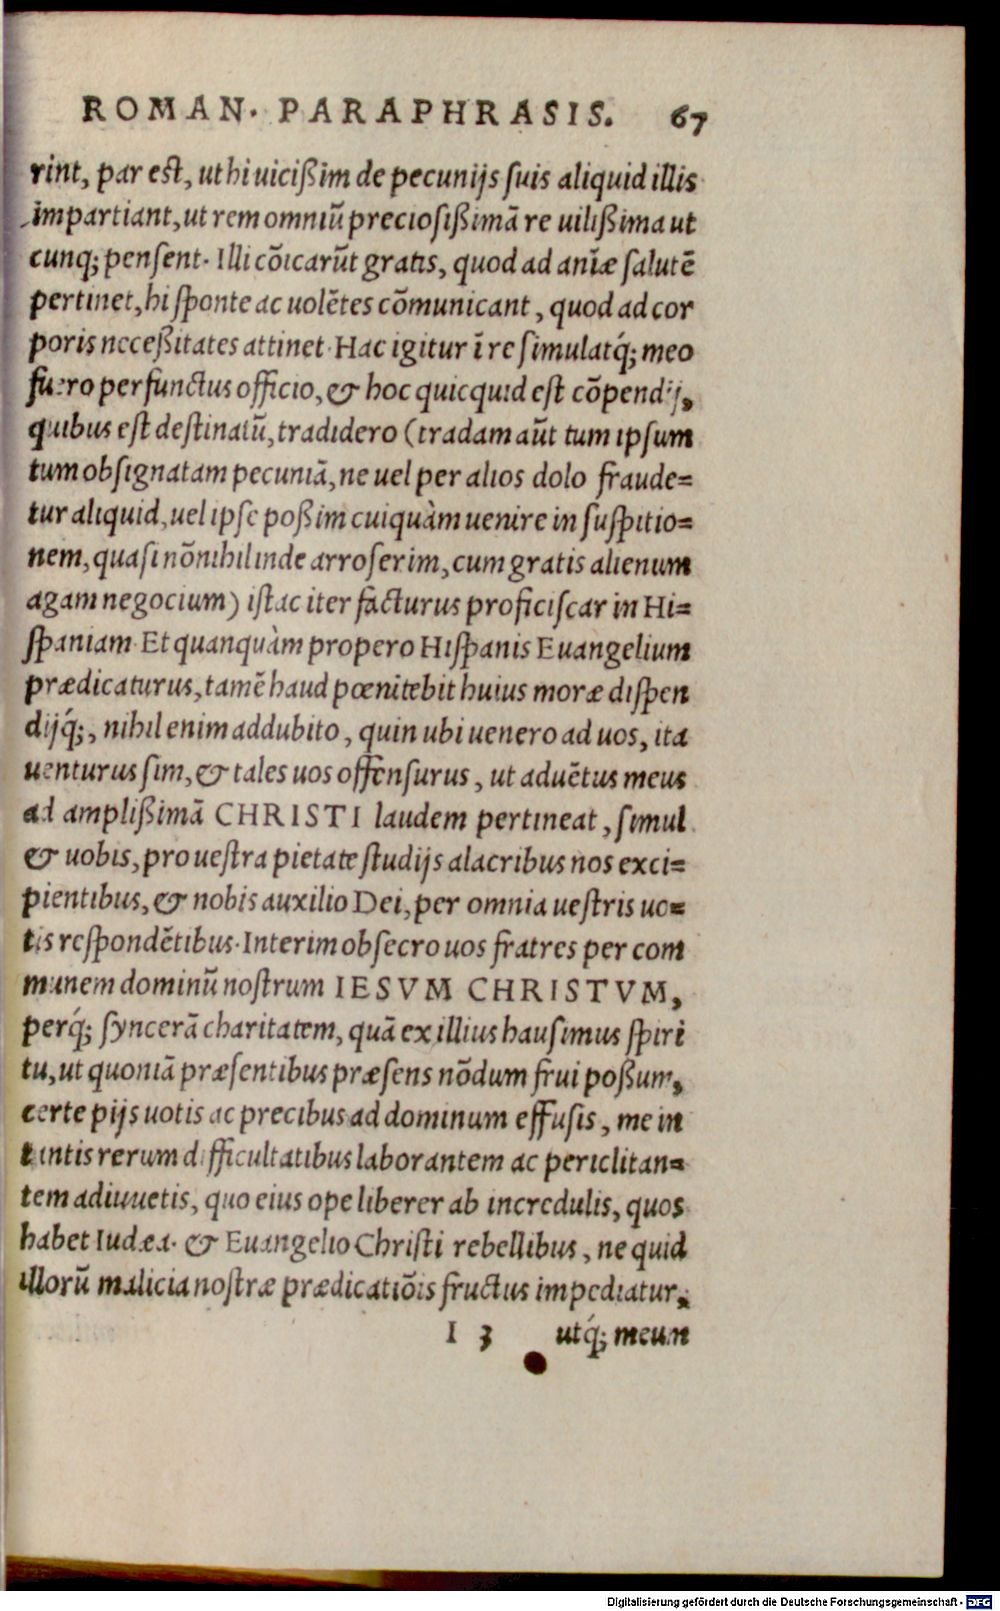 ROMAN. PARAPHRASIS. 67
rint, par est, ut hi uicißim de pecunijs suis aliquid illis
impartiant, ut rem omniũ preciosißimã re uilißima ut
cunq; pensent. Illi cõicarũt gratis, quod ad aniæ salutẽ
pertinet, hi sponte ac uolẽtes cõmunicant, quod ad cor
poris neceßitates attinet. Hac igitur ĩ re simulatq́; meo
fuero perfunctus officio, & hoc quicquid est cõpendij,
quibus est destinatũ, tradidero (tradam aũt tum ipsum
tum obsignatam pecuniã, ne uel per alios dolo fraude=
tur aliquid, uel ipse poßim cuiquàm uenire in suspitio=
nem, quasi nõnihil inde arroserim, cum gratis alienum
agam negocium) istac iter facturus proficiscar in Hi=
spaniam. Et quanquàm propero Hispanis Euangelium
prædicaturus, tamẽ haud pœnitebit huius moræ dispen
dijq́;, nihil enim addubito, quin ubi uenero ad uos, ita
uenturus sim, & tales uos offensurus, ut aduẽtus meus
ad amplißimã CHRISTI laudem pertineat, simul
& uobis, pro uestra pietate studijs alacribus nos exci=
pientibus, & nobis auxilio Dei, per omnia uestris uo=
tis respondẽtibus. Interim obsecro uos fratres per com
munem dominũ nostrum IESVM CHRISTVM,
perq́; syncerã charitatem, quã ex illius hausimus spiri
tu, ut quoniã præsentibus præsens nõdum frui poßum,
certe pijs uotis ac precibus ad dominum effusis, me in
tantis rerum difficultatibus laborantem ac periclitan=
tem adiuuetis, quo eius ope liberer ab incredulis, quos
habet Iudæa. & Euangelio Christi rebellibus, ne quid
illorũ malicia nostræ prædicatiõis fructus impediatur,
I 3 utq́; meum
Digitalisierung gefördert durch die Deutsche Forschungsgemeinschaft - DFG